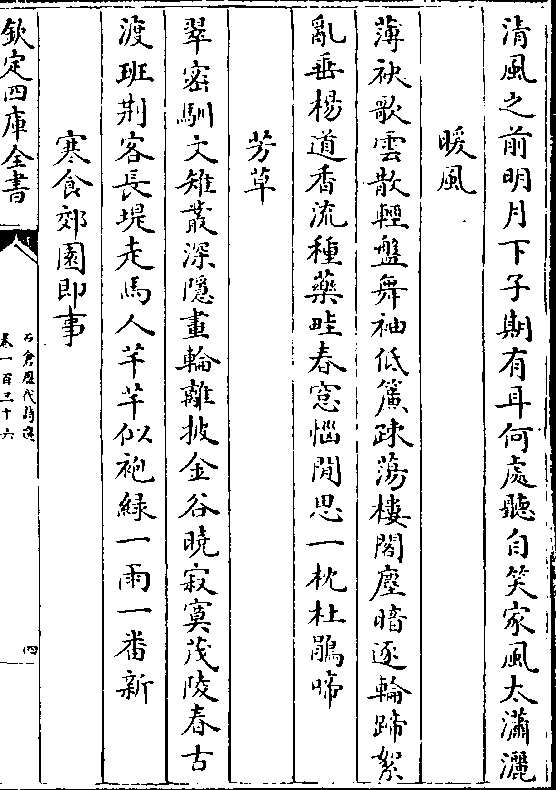 清風之前明月下子期有耳何處聽自笑家風太瀟灑
暖風
薄袂歌雲散輕盤舞袖低簾疎蕩樓閣塵暗逐輪蹄絮
亂垂楊道香流種藥畦春窓惱閒思一枕杜鵑啼
芳草
翠密馴文雉叢深隱畫輪離披金谷曉寂寞茂陵春古
渡班荆客長堤走馬人芊芊似袍緑一雨一番新
寒食郊園即事
欽定四庫全書
石倉歴代詩選
卷一百三十六
四